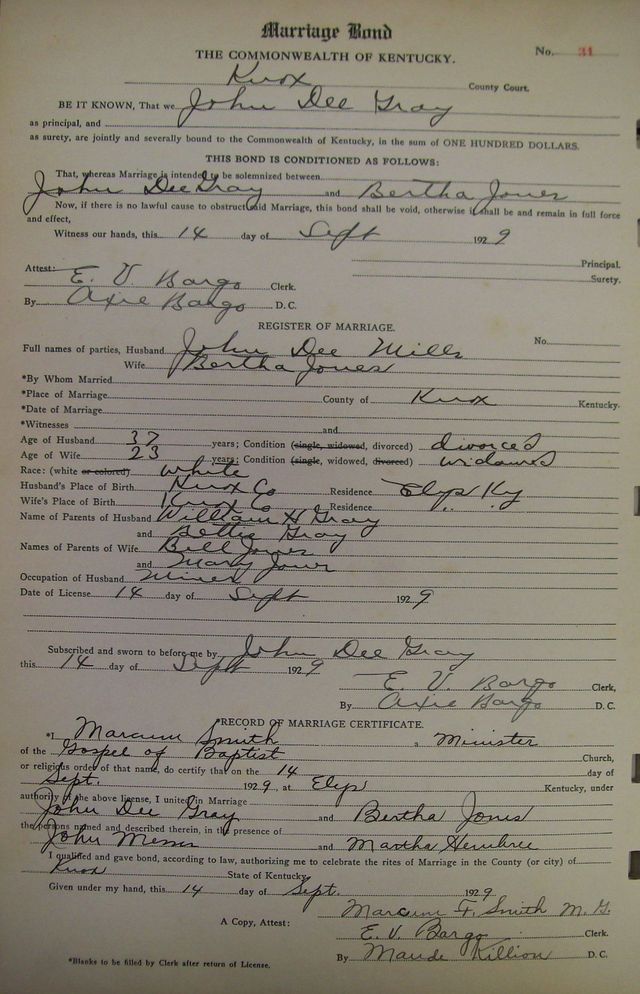 Marriage Bond
THE COMMONWEALTH OF KENTUCKY.
No. 31
Knox County Court.
BE IT KNOWN, That we John Dee Gray
as principal, and
as surety, are jointly and severally bound to the Commonwealth of Kentucky, in the sum of ONE HUNDRED DOLLARS.
THIS BOND IS CONDITIONED AS FOLLOWS:
That, whereas Marriage is intended to be solemnized between
John Dee Gray and Bertha Jones
Now, if there is no lawful cause to obstruct said Marriage, this bond shall be void, otherwise it shall be and remain in full force
and effect,
Witness our hands, this 14 day of Sept 1929
Principal.
Surety.
Attest: E. V. Bargo Clerk.
By Axie Bargo D. C.
REGISTER OF MARRIAGE.
No.
Full names of parties, Husband John Dee Mills
Wife Bertha Jones
*By Whom Married
*Place of Marriage County of Knox Kentucky.
*Date of Marriage
*Witnesses and
Age of Husband 37 years; Condition (single, widowed, divorced) divorced
Age of Wife 23 years; Condition (single, widowed, divorced) widowed
Race: (white or colored) white
Husband's Place of Birth Knox Co Residence Elys Ky
Wife's Place of Birth Knox Co Residence " "
Name of Parents of Husband William H Gray
and Bettie Gray
Names of Parents of Wife Bill Jones
and Mary Jones
Occupation of Husband Miner
Date of License 14 day of Sept 1929
Subscribed and sworn to before me by John Dee Gray
this 14 day of Sept 1929
E. V. Bargo Clerk,
By Axie Bargo D. C.
*RECORD OF MARRIAGE CERTIFICATE.
*I Smith a Minister
of the Gospel of Baptist Church,
or religious order of that name, do certify that on the 14 day of
Sept. 1929, at Elys Kentucky, under
authority of the above license, I united in Marriage
John Dee Gray and Bertha Jones
the persons named and described therein, in the presence of
John and Martha Hembree
I qualified and gave bond, according to law, authorizing me to celebrate the rites of Marriage in the County (or city) of
Knox State of Kentucky
Given under my hand, this 14 day of Sept. 1929
F. Smith M. G.
A Copy, Attest: E. V. Bargo Clerk.
By Maude Killion D. C.
*Blanks to be filled by Clerk after return of License.